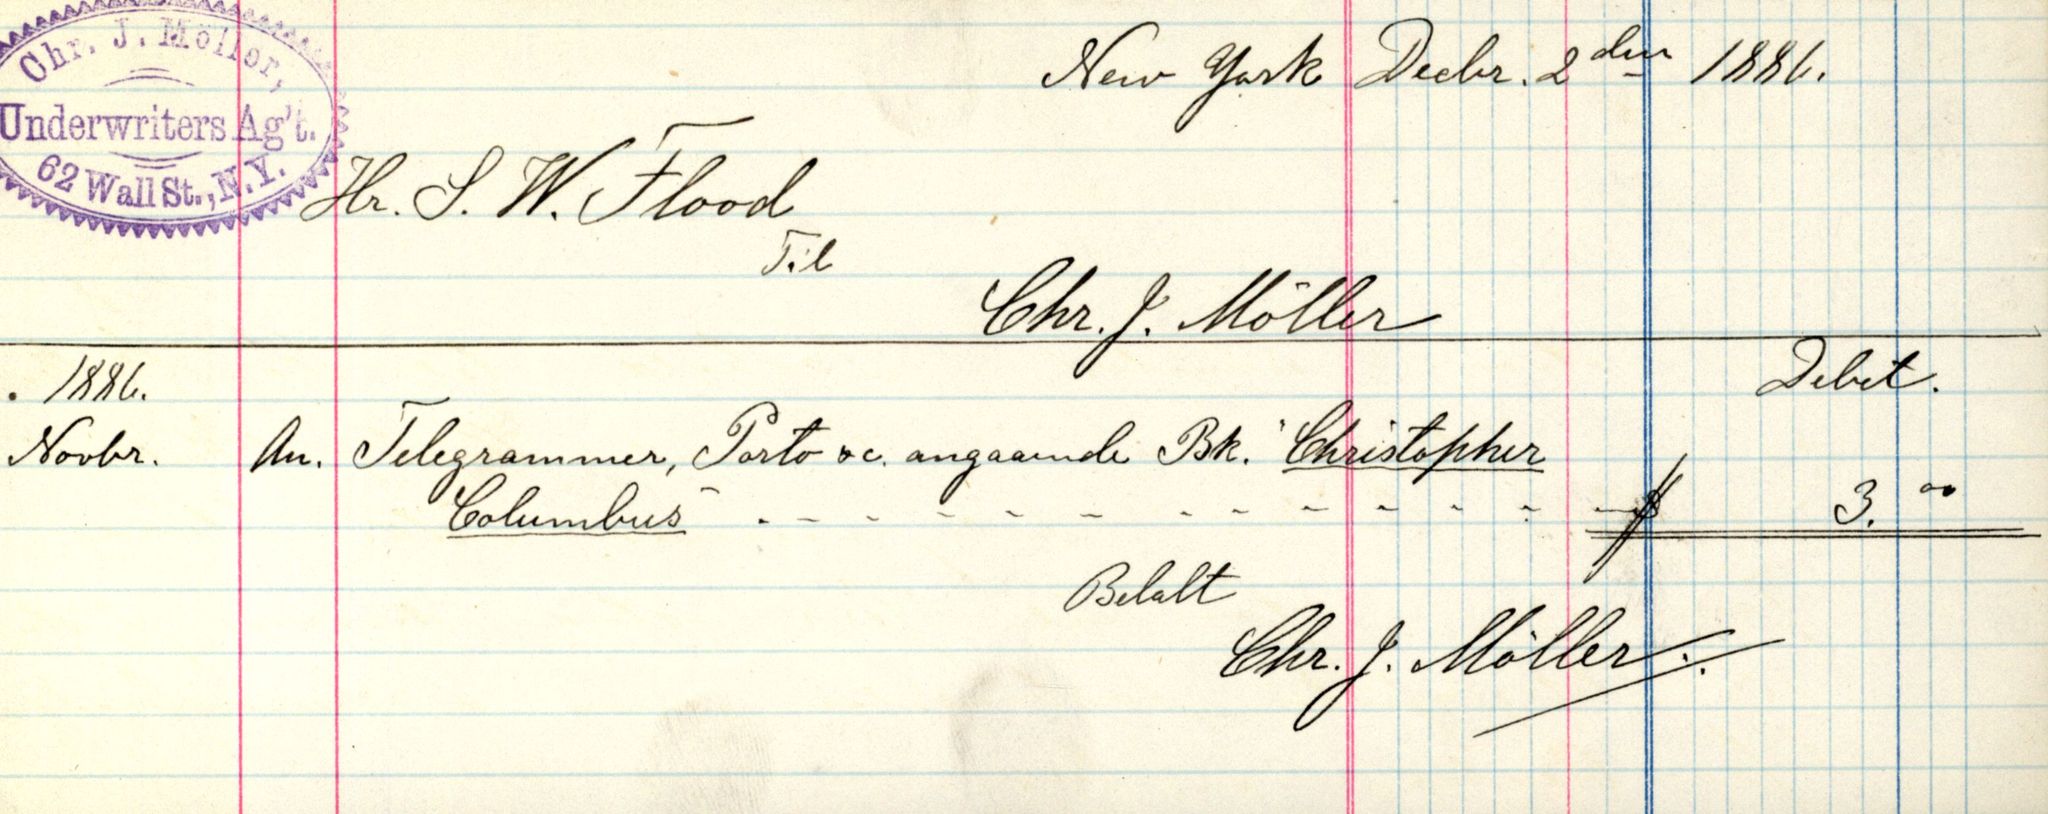 Chr. J. Möller,
Underwriters Ag't.
62 Wall St., N.Y.
New York Decbr. 2 den 1886.
Hr. S. W. Flood
Til
Chr. J. Möller
1886. Debet.
Novbr. An. Telegrammer, Porto &c. angaaende Bk. "Christopher
Columbus" - - - - - - - - - - - - - - $ 3.00
Betalt
Chr. J. Möller.